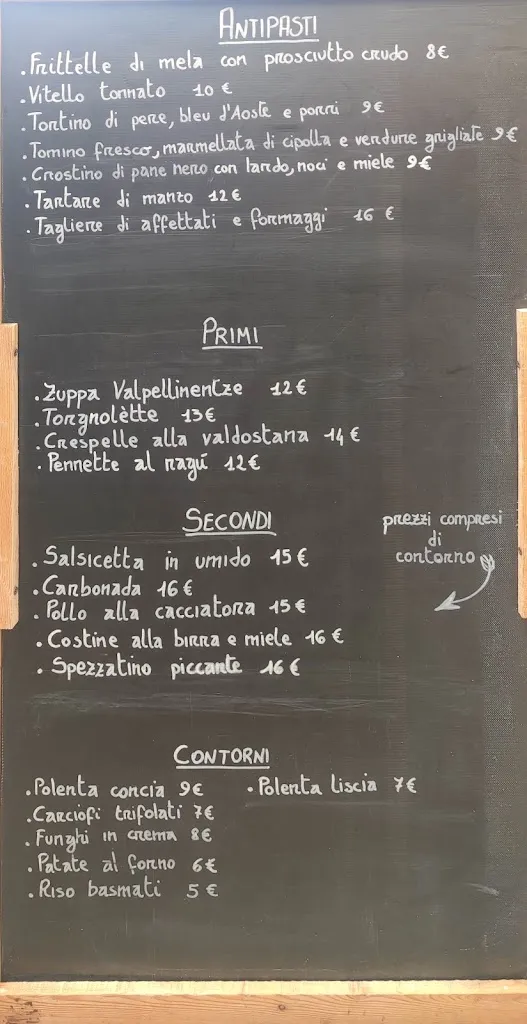 ANTIPASTI
. Frittelle di mela con prosciutto crudo 8€
. Vitello tonnato 10 €
. Tortino di pere, bleu d'Aoste e porri 9€
. Tomino fresco, marmellata di cipolla e verdure grigliate 9€
. Crostino di pane nero con lardo, noci e miele 9€
. Tartare di manzo 12€
. Tagliere di affettati e formaggi 16 €
PRIMI
. Zuppa Valpellinentze 12€
. Torgnolètte 13€
. Crespelle alla valdostana 14€
. Pennette al ragú 12€
SECONDI
prezzi compresi
di
contorno
. Salsicetta in umido 15€
. Carbonada 16€
. Pollo alla cacciatora 15€
. Costine alla birra e miele 16€
. Spezzatino piccante 16€
CONTORNI
. Polenta concia 9€ . Polenta liscia 7€
. Carciofi trifolati 7€
. Funghi in crema 8€
. Patate al forno 6€
. Riso basmati 5€